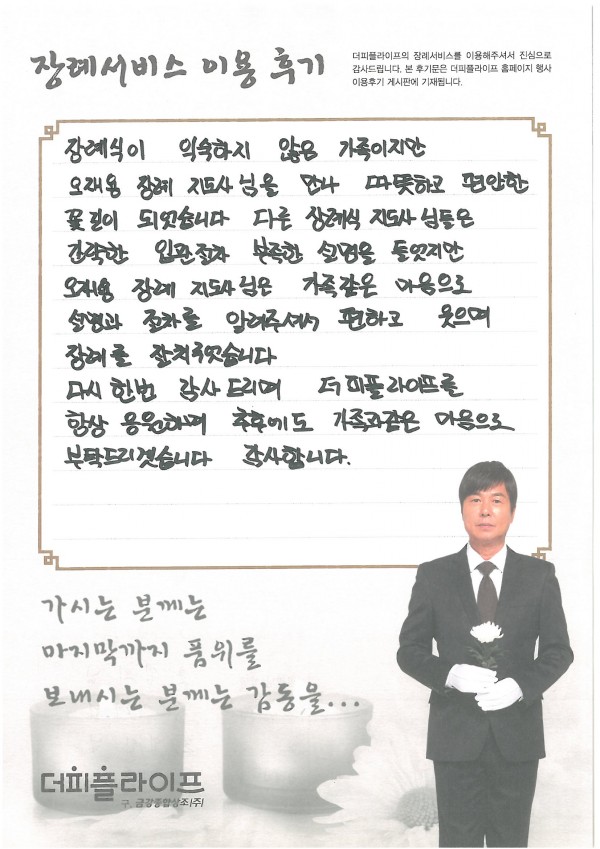 장례서비스 이용 후기
더피플라이프의 장례서비스를 이용해주셔서 진심으로
감사드립니다. 본 후기문은 더피플라이프 홈페이지 행사
이용후기 게시판에 기재됩니다.
장례식이 익숙하지 않은 가족이지만
오재용 장례 지도사님을 만나 따뜻하고 편안한
꽃길이 되엇습니다 다른 장례식 지도사님들은
간략한 입관절차 부족한 설명을 들엇지만
오재용 장례 지도사님은 가족같은 마음으로
설명과 절차를 알려주셔서 편하고 웃으며
장례를 잘치루엇습니다
다시한번 감사드리며 더피플라이프를
항상 응원하며 추후에도 가족과같은 마음으로
부탁드리겟습니다 감사합니다.
가시는 분께는
마지막까지 품위를
보내시는 분께는 감동을...
더피플라이프
구. 금강종합상조(주)